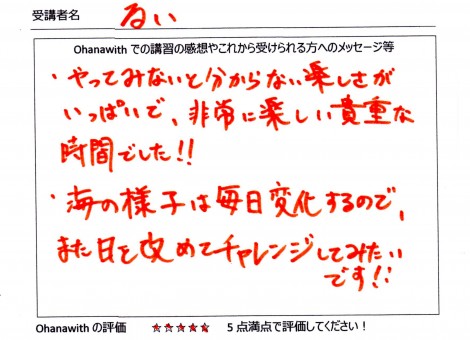 受講者名 るい
Ohanawith での講習の感想やこれから受けられる方へのメッセージ等
・やってみないと分からない楽しさが
いっぱいで、非常に楽しい貴重な
時間でした!!
・海の様子は毎日変化するので、
また日を改めてチャレンジしてみたい
です!!
Ohanawith の評価 ★★★★★ 5 点満点で評価してください!